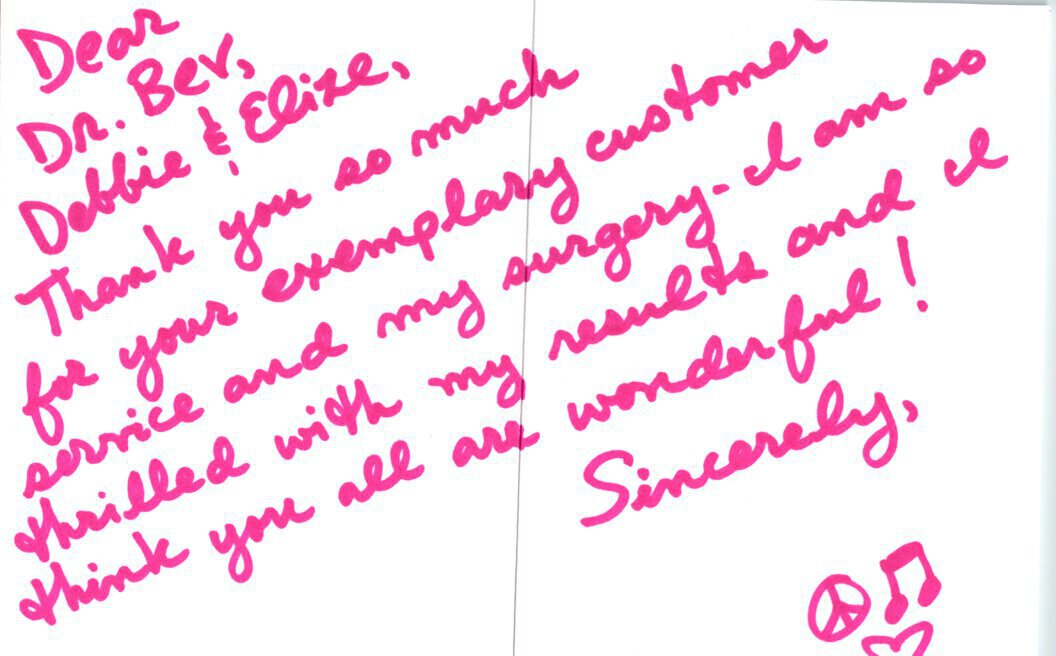 Dear
Dr. Bev,
Debbie & Elize,
Thank you so much
for your exemplary customer
service and my surgery - I am so
thrilled with my results and I
think you all are wonderful!
Sincerely,